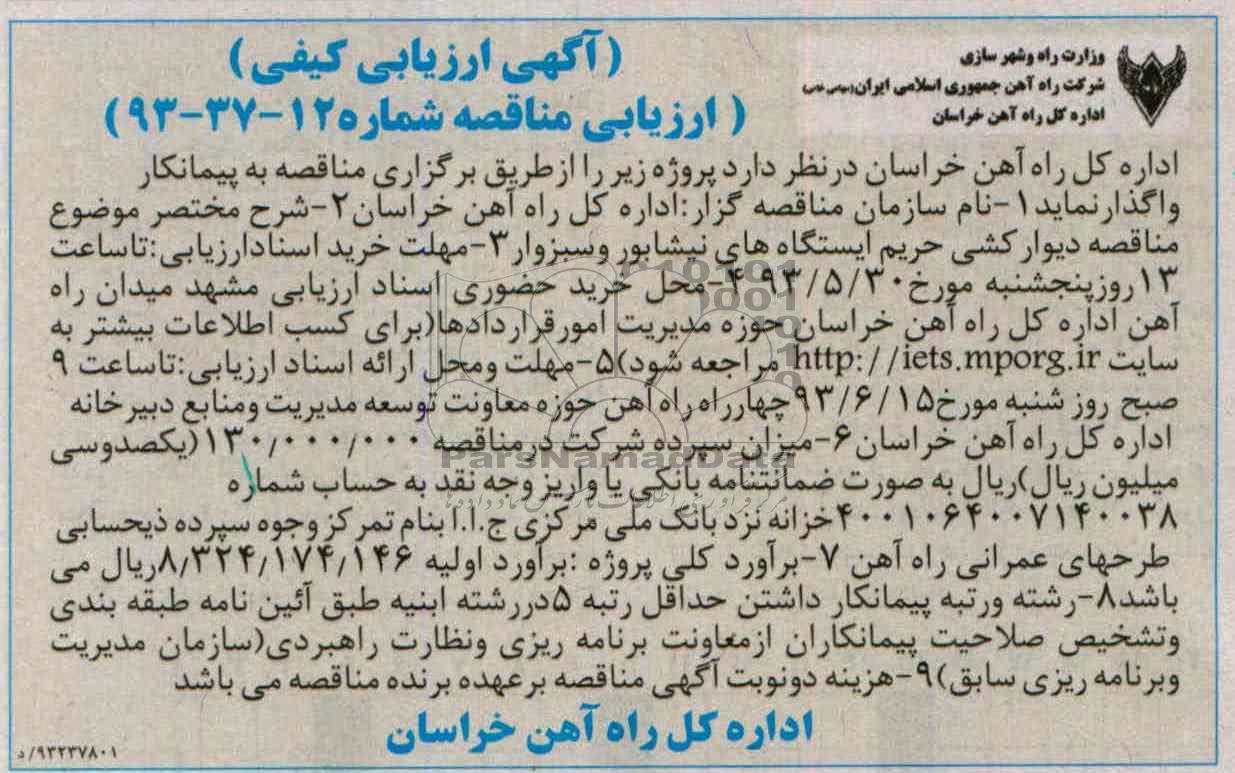 وزارت راه وشهر سازی
شرکت راه آهن جمهوری اسلامی ایران(سهامی خاص)
اداره کل راه آهن خراسان
(آگهی ارزیابی کیفی)
(ارزیابی مناقصه شماره۱۲-۳۷-۹۳)
اداره کل راه آهن خراسان درنظر دارد پروژه زیر را ازطریق برگزاری مناقصه به پیمانکار
واگذارنماید۱-نام سازمان مناقصه گزار:اداره کل راه آهن خراسان۲-شرح مختصر موضوع
مناقصه دیوارکشی حریم ایستگاه های نیشابور وسبزوار۳-مهلت خرید اسنادارزیابی:تاساعت
۱۳روزپنجشنبه مورخ۹۳/۵/۳۰ ۴-محل خرید حضوری اسناد ارزیابی مشهد میدان راه
آهن اداره کل راه آهن خراسان حوزه مدیریت امورقراردادها(برای کسب اطلاعات بیشتر به
سایت http://iets.mporg.ir مراجعه شود)۵-مهلت ومحل ارائه اسناد ارزیابی:تاساعت ۹
صبح روز شنبه مورخ۹۳/۶/۱۵چهارراه راه آهن حوزه معاونت توسعه مدیریت ومنابع دبیرخانه
اداره کل راه آهن خراسان۶-میزان سپرده شرکت درمناقصه ۱۳۰/۰۰۰/۰۰۰(یکصدوسی
میلیون ریال)ریال به صورت ضمانتنامه بانکی یا واریز وجه نقد به حساب شماره
۴۰۰۱۰۶۴۰۰۷۱۴۰۰۳۸خزانه نزد بانک ملی مرکزی ج.ا.ا بنام تمرکز وجوه سپرده ذیحسابی
طرحهای عمرانی راه آهن ۷-برآورد کلی پروژه :برآورد اولیه ۸/۳۲۴/۱۷۴/۱۴۶ریال می
باشد۸-رشته ورتبه پیمانکار داشتن حداقل رتبه ۵دررشته ابنیه طبق آئین نامه طبقه بندی
وتشخیص صلاحیت پیمانکاران ازمعاونت برنامه ریزی ونظارت راهبردی(سازمان مدیریت
وبرنامه ریزی سابق)۹-هزینه دونوبت آگهی مناقصه برعهده برنده مناقصه می باشد
اداره کل راه آهن خراسان
۹۳۲۳۷۸۰۱/د
ParsNamadData